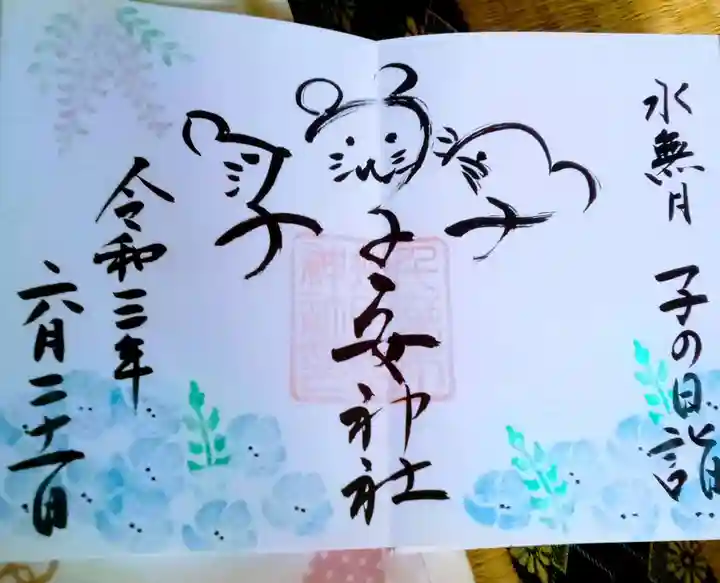 水無月 子の日詣
子 子 子
子安神社
令和三年
六月二十一日